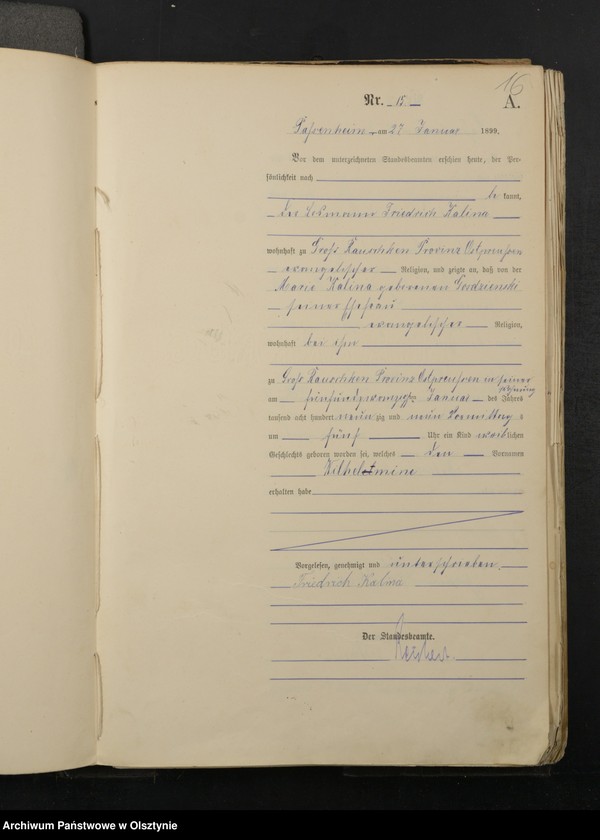 16
Nr. 15.
A.
Passenheim, am 27 Januar 1899.
Vor dem unterzeichneten Standesbeamten erschien heute, der Per-
sönlichkeit nach
be kannt,
der Losmann Friedrich Kalina
wohnhaft zu Groß Rauschken Provinz Ostpreußen
evangelischer Religion, und zeigte an, daß von der
Marie Kalina geborenen
seiner Ehefrau
evangelischer Religion,
wohnhaft bei ihm
zu Groß Rauschken Provinz Ostpreußen in seiner
Wohnung
am fünfundzwanzigsten Januar des Jahres
tausend acht hundert neunzig und neun Vormittag s
um fünf Uhr ein Kind weiblichen
Geschlechts geboren worden sei, welches den Vornamen
Wilhelmine
erhalten habe
Vorgelesen, genehmigt und unterschrieben.
Friedrich Kalina
Der Standesbeamte.
Archiwum Państwowe w Olsztynie